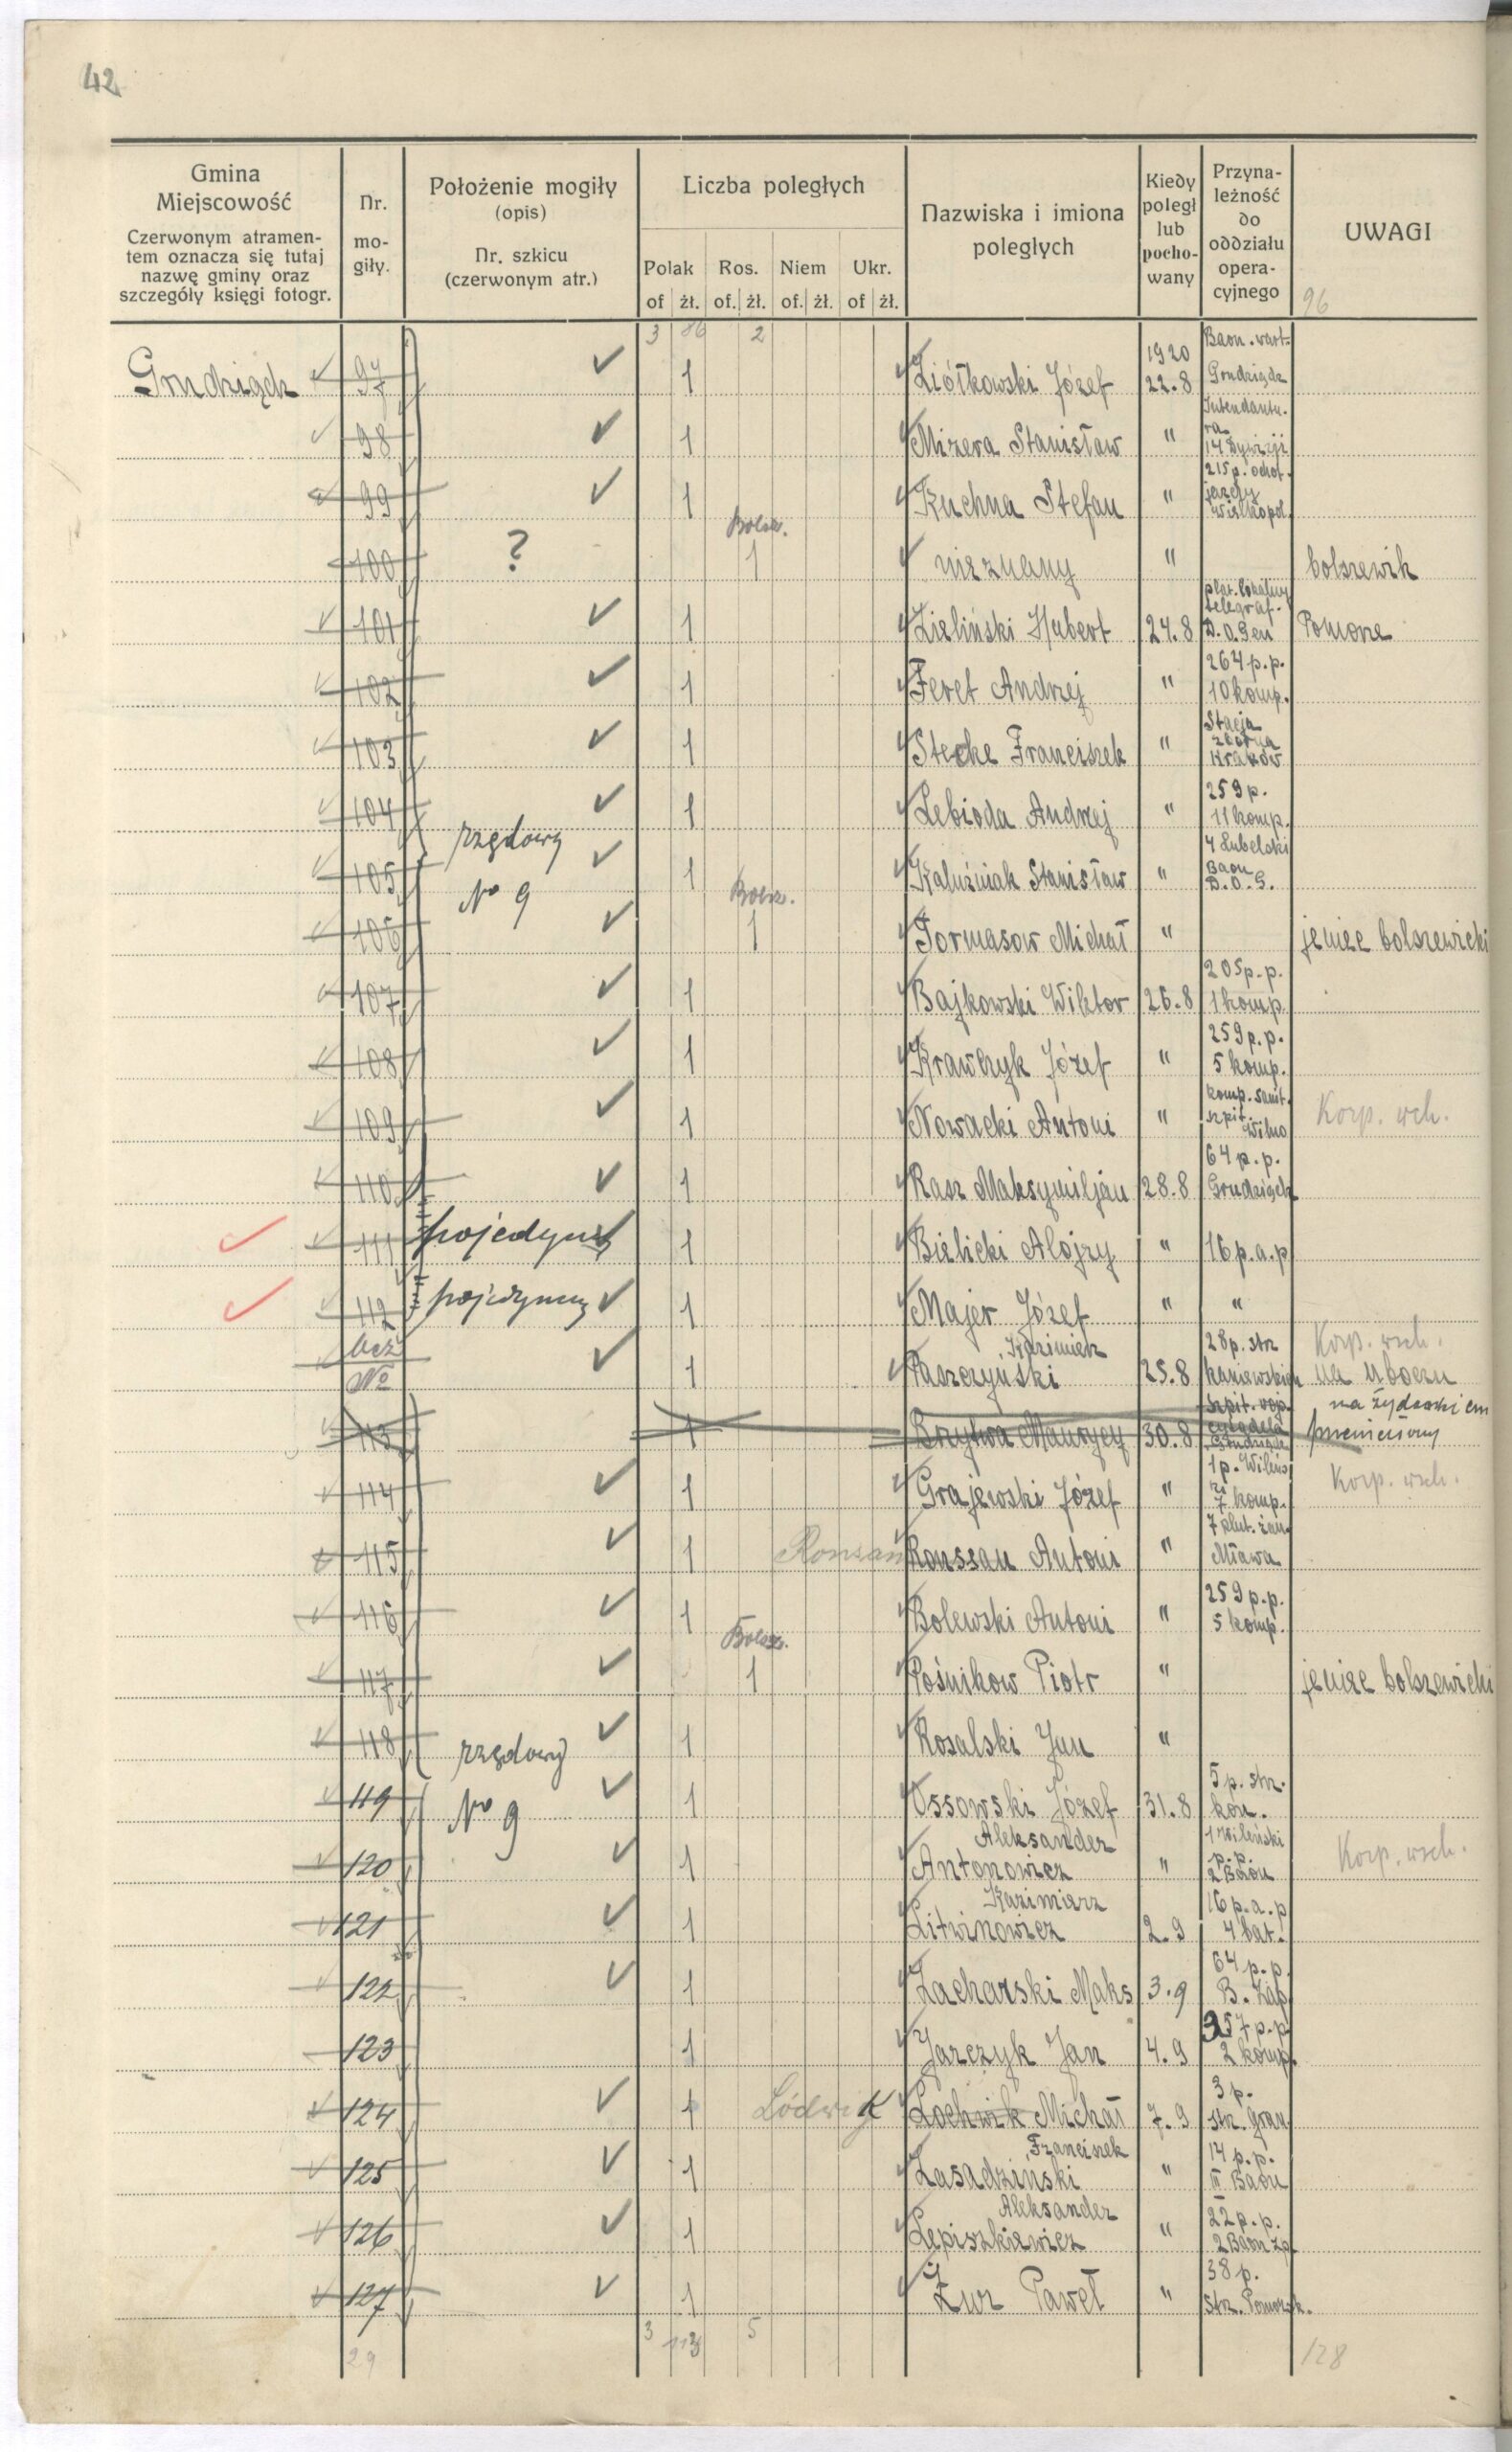 42
Gmina
Miejscowość
Czerwonym atramen-
tem oznacza się tutaj
nazwę gminy oraz
szczegóły księgi fotogr.
Nr.
mo-
giły.
Położenie mogiły
(opis)
Nr. szkicu
(czerwonym atr.)
Liczba poległych
Polak Ros. Niem Ukr.
of żł. of. żł. of. żł. of żł.
Nazwiska i imiona
poległych
Kiedy
poległ
lub
pocho-
wany
Przyna-
leżność
do
oddziału
opera-
cyjnego
UWAGI
96
3 86 2
Grudziądz 97 1 Ziółkowski Józef 1920 22.8 Baon. wart. Grudziądz
98 1 Mizera Stanisław " Intendantu. ra 14 Dywizji
99 1 Kuchna Stefan " 215 p. ochot. jazdy wielkopol.
100 ? Bolsz. 1 nieznany " bolszewik
101 1 Zieliński Hubert 24.8 plut. lokalny telegraf. D.O.Gen Pomorze
102 1 Feret Andrzej " 264 p.p. 10 komp.
103 1 Stecke Franciszek " Stacja zborna Kraków
104 1 Lebioda Andrzej " 259 p. 11 komp.
rzędowy
105 No 9 1 Kaluźniak Stanisław " 4 Lubelski Baon D.O.G.
106 Bolsz. 1 Tormasow Michał " jeniec bolszewicki
107 1 Bajkowski Wiktor 26.8 205 p.p. 1 komp
108 1 Krawczyk Józef " 259 p.p. 5 komp.
109 1 Nowacki Antoni " komp. sanit. szpit. Wilno Korp. wch.
110 1 Rasz Maksymiljan 28.8 64 p.p. Grudziądz
111 pojedynczy 1 Bielicki Alojzy " 16 p.a.p
112 pojedynczy 1 Majer Józef " "
bez No 1 Paszczyński Kazimierz 25.8 28 p. str kaniowskich Korp. wsch. na uboczu
113 1 Brzytwa Maurycy 30.8 szpit. woj. cytadela Grudziądz na żydowskiem przeniesiony
114 1 Grajewski Józef " 1 p. Wileńs ki 7 komp. Korp. wsch.
115 1 Ronsan Roussau Antoni " 7 plut. żan. Mława
116 1 Bolewski Antoni " 259 p.p. 5 komp.
117 Bolsz. 1 Pośnikow Piotr " jeniec bolszewicki
118 rzędowy 1 Rosalski Jan "
119 No 9 1 Ossowski Józef 31.8 5 p. strz. kon.
120 1 Antonowicz Aleksander " 1 Wileński p.p. 2 Baon Korp. wsch.
121 1 Litwinowicz Kazimierz 2.9 16 p.a.p 4 bat.
122 1 Zacharski Maks 3.9 64 p.p. B. Zap
123 1 Jarczyk Jan 4.9 357 p.p. 2 komp.
124 1 Lódwik Lochwik Michał 7.9 3 p. str. gran
125 1 Zasadziński Franciszek " 14 p.p. III Baon
126 1 Lepiszkiewicz Aleksander " 22 p.p. 2 Baon zp.
127 1 Żur Paweł " 38 p. Strz. Pomorsk.
29 3 113 5 128